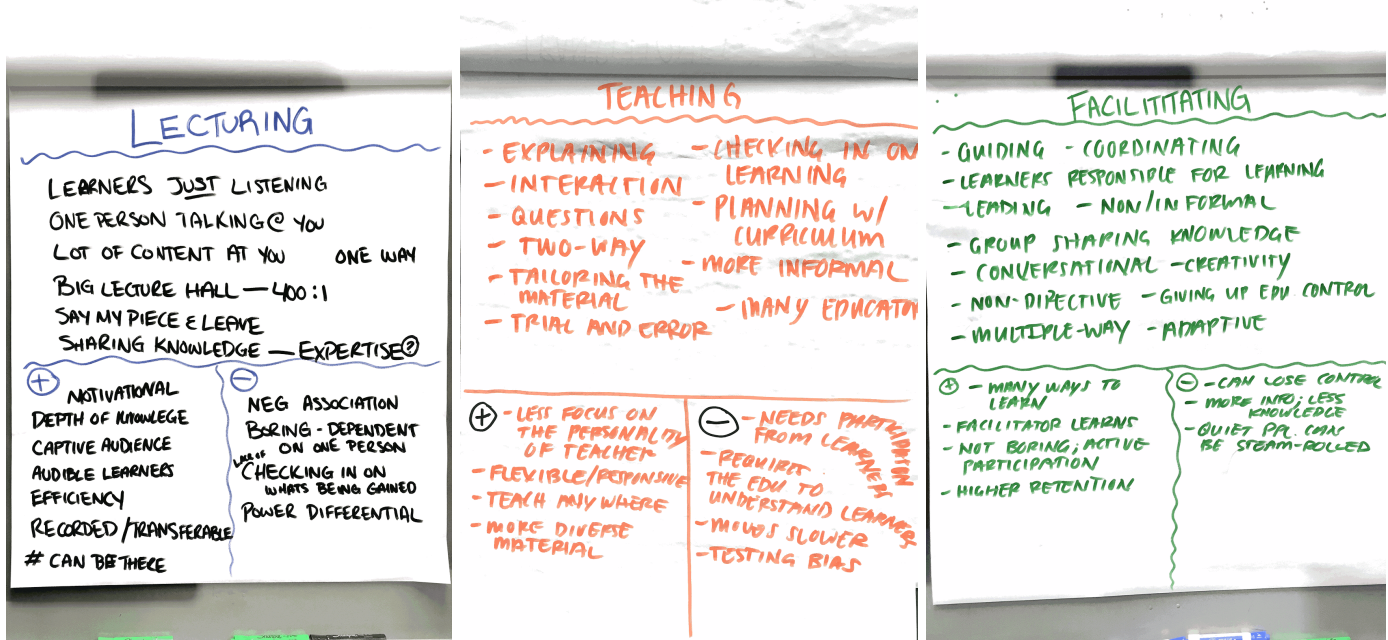 LECTURING
LEARNERS JUST LISTENING
ONE PERSON TALKING @ YOU
LOT OF CONTENT AT YOU ONE WAY
BIG LECTURE HALL — 400:1
SAY MY PIECE & LEAVE
SHARING KNOWLEDGE — EXPERTISE?
+
MOTIVATIONAL
DEPTH OF KNOWLEGE
CAPTIVE AUDIENCE
AUDIBLE LEARNERS
EFFICIENCY
RECORDED/TRANSFERABLE
# CAN BE THERE
−
NEG ASSOCIATION
BORING - DEPENDENT
ON ONE PERSON
LACK OF
CHECKING IN ON
WHATS BEING GAINED
POWER DIFFERENTIAL
TEACHING
- EXPLAINING
- INTERACTION
- QUESTIONS
- TWO-WAY
- TAILORING THE
MATERIAL
- TRIAL AND ERROR
- CHECKING IN ON
LEARNING
- PLANNING W/
CURRICULUM
- MORE INFORMAL
- MANY EDUCATOR
+
- LESS FOCUS ON
THE PERSONALITY
OF TEACHER
- FLEXIBLE/RESPONSIVE
- TEACH ANYWHERE
- MORE DIVERSE
MATERIAL
−
- NEEDS PARTICIPATION
FROM LEARNERS
- REQUIRES
THE EDU TO
UNDERSTAND LEARNERS
- MOVES SLOWER
- TESTING BIAS
FACILITITATING
- GUIDING - COORDINATING
- LEARNERS RESPONSIBLE FOR LEARNING
- LEADING - NON/INFORMAL
- GROUP SHARING KNOWLEDGE
- CONVERSATIONAL - CREATIVITY
- NON-DIRECTIVE - GIVING UP EDU CONTROL
- MULTIPLE-WAY - ADAPTIVE
+
- MANY WAYS TO
LEARN
- FACILITATOR LEARNS
- NOT BORING; ACTIVE
PARTICIPATION
- HIGHER RETENTION
−
- CAN LOSE CONTROL
- MORE INFO; LESS
KNOWLEDGE
- QUIET PPL CAN
BE STEAM-ROLLED